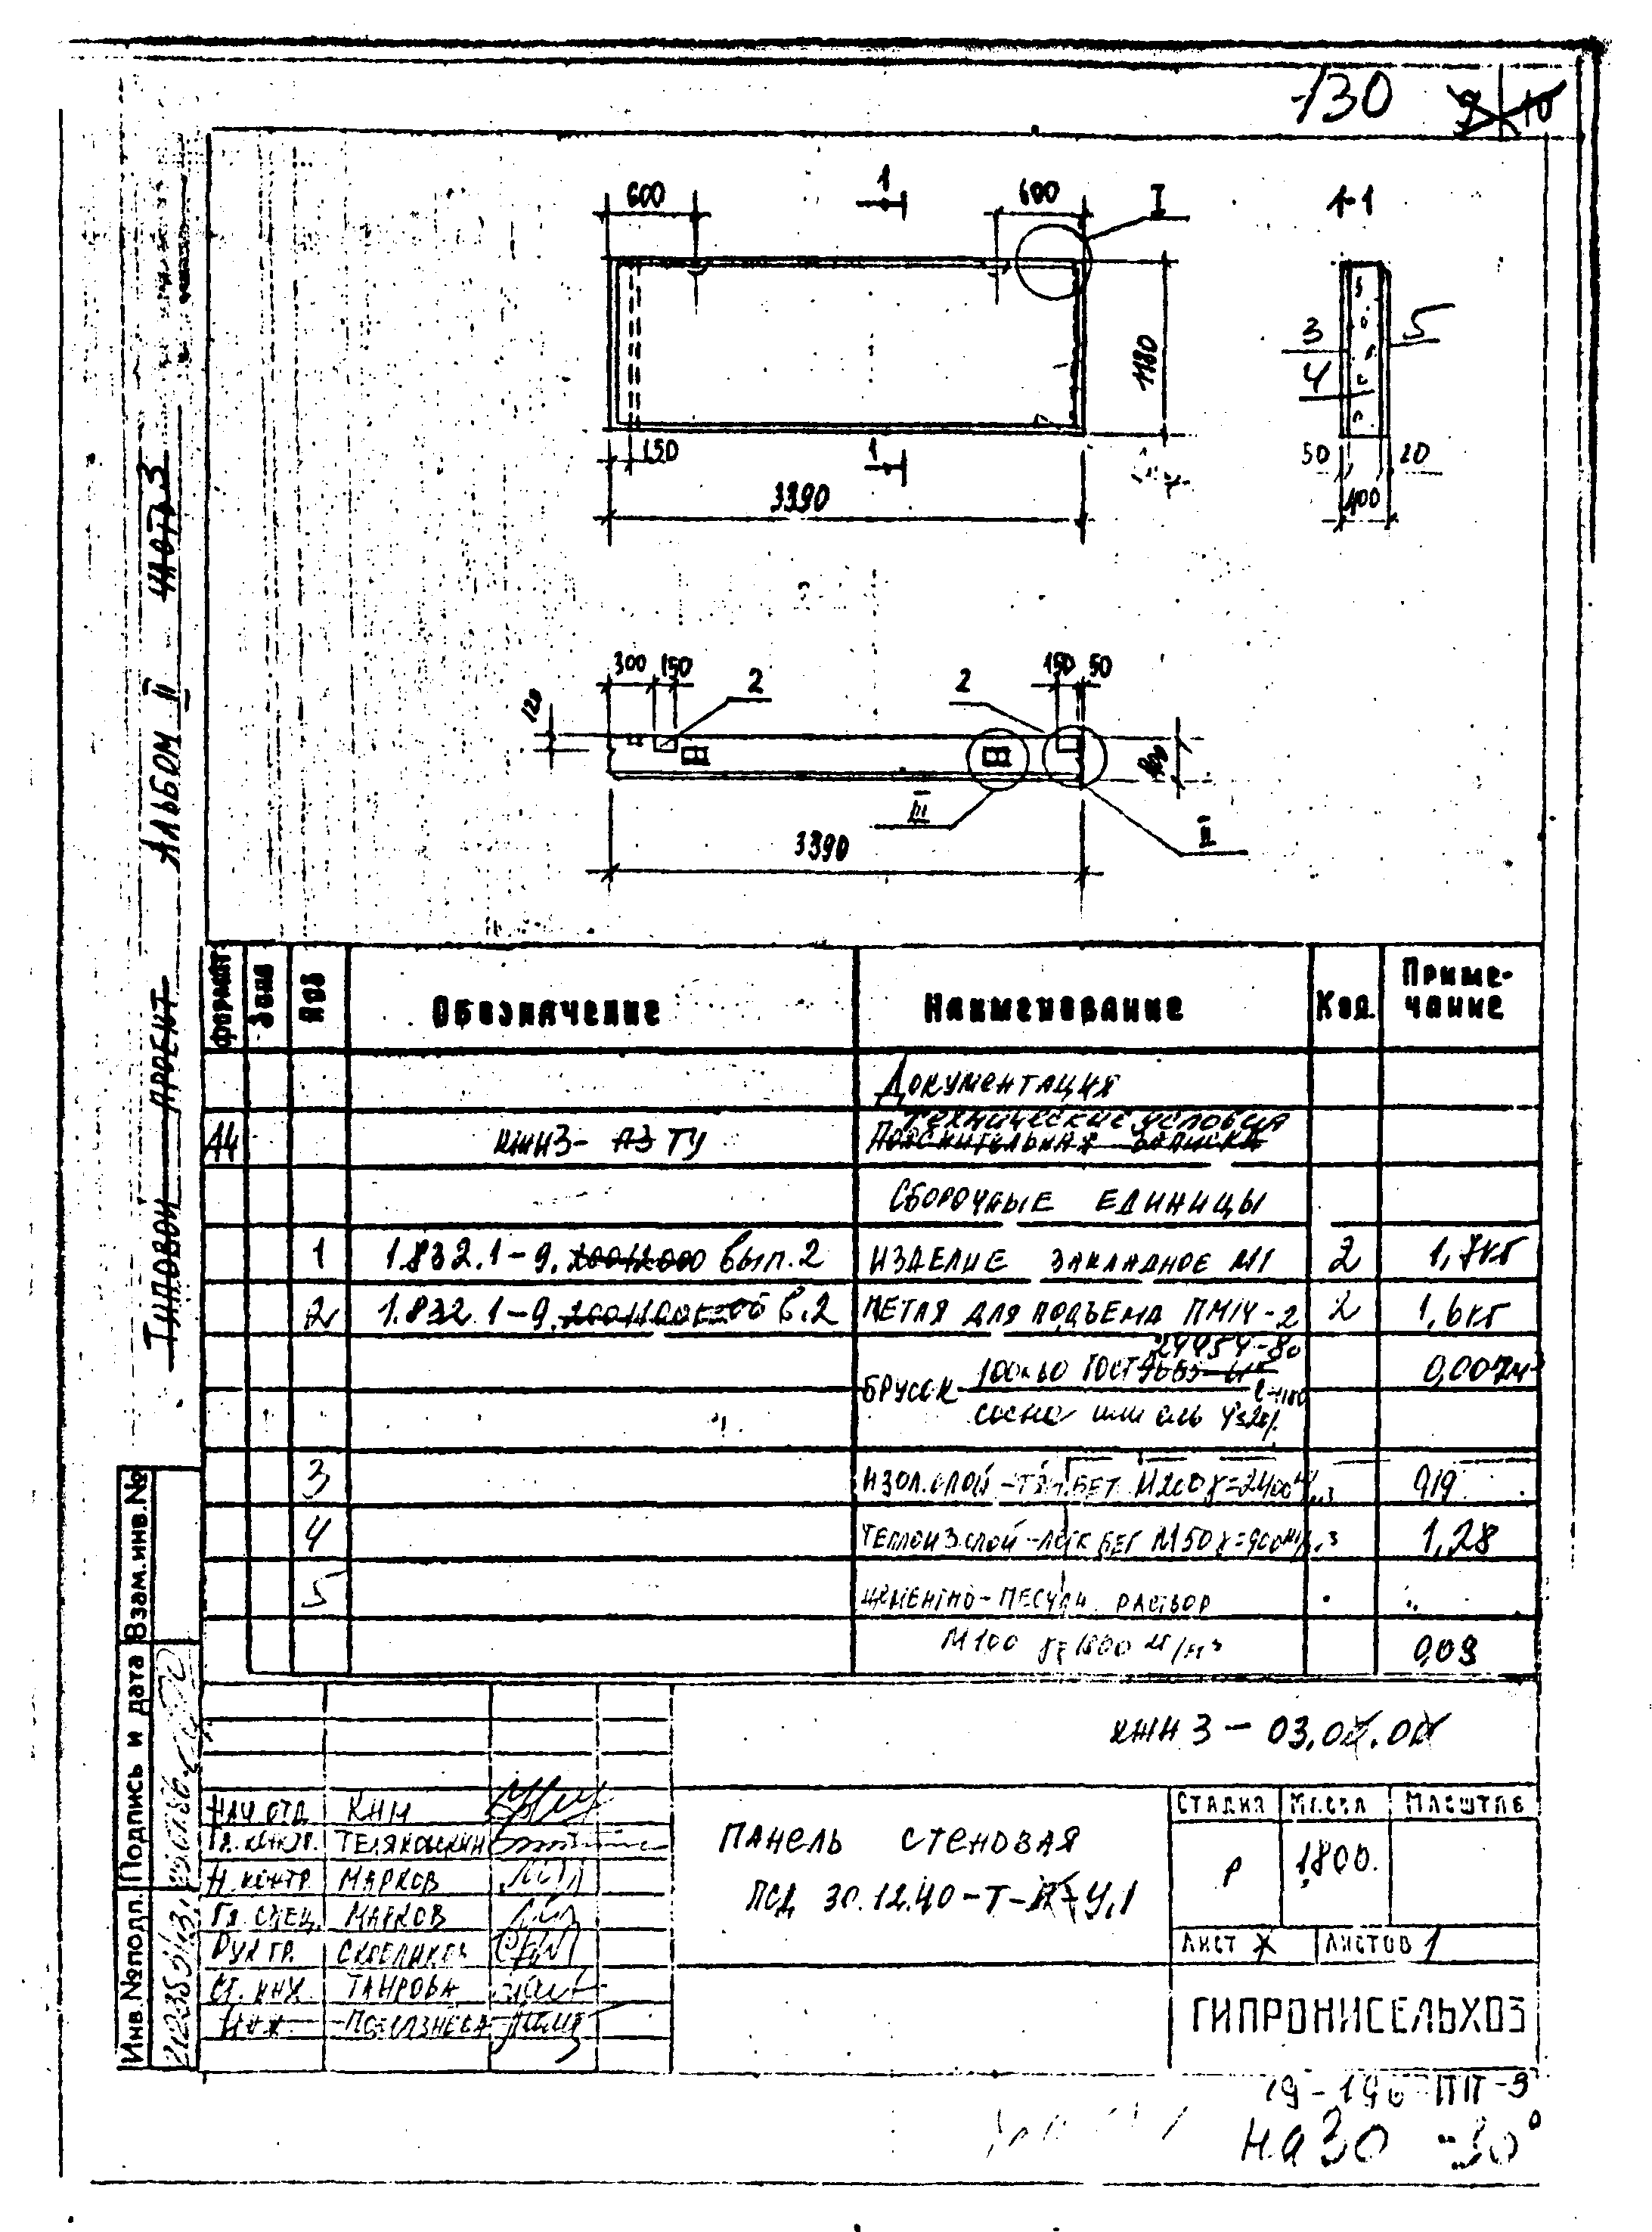 130
9 10
600
1
600
I
1-1
3
4
5
1180
150
1
50
20
400
3390
300
150
2
2
150
50
120
400
III
II
3390
Типовой проект Альбом II часть 3
Формат
Зона
Поз
Обозначение
Наименование
Кол.
Приме-
чание
Документация
Технические условия
А4
КЖНЗ- ПЗ ТУ
Пояснительная записка
Сборочные единицы
1
1.832.1-9. вып.2
Изделие закладное М1
2
1,7кг
2
1.832.1-9. в.2
Петля для подъема ПМ14-2
2
1,6кг
24454-80
Брусок 100х60 ГОСТ
l=1180
0,007м³
сосна или ель
3
Изол.слой -тяж.бет. М200 γ=2400
0,19
4
Теплоиз слой -легк бет М50 γ=900
1,28
5
Цементно-песчан. раствор
М100 γ=1800 кг/м³
0,09
Взам.инв.№
Подпись и дата
Инв.№подл.
КЖН 3 - 03.00.00
Нач.отд.
КНМ
Гл. констр.
Теляковский
Н.контр.
Марков
Гл. спец.
Марков
Рук гр.
Скобликов
Ст. инж.
Таирова
Инж
Панель стеновая
ПСД 30.12.40-Т-П-У.1
Стадия
Масса
Масштаб
Р
1800.
Лист
Листов 1
ГИПРОНИСЕЛЬХОЗ
на 30 -30°